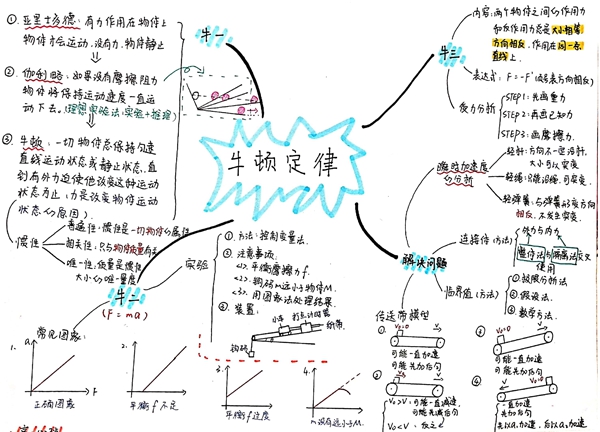 牛顿定律
牛一
①. 亚里士多德: 有力作用在物体上
物体才会运动, 没有力, 物体静止
②. 伽利略: 如果没有摩擦阻力
物体将保持运动速度一直运
动下去。(理想实验法: 实验+推理)
③. 牛顿: 一切物体总保持匀速
直线运动状态或静止状态, 直
到有外力迫使他改变这种运动
状态为止。(力是改变物体运动
状态的原因)
惯性
普遍性: 惯性是一切物体的属性
相关性: 只与物体质量有关
唯一性: 质量是惯性
大小的唯一量度
牛二
(F=ma)
实验
①. 方法: 控制变量法。
②. 注意事项
<1>. 平衡摩擦力 f.
<2>. 物码m远小于物体M.
<3>. 用图象法处理结果.
④. 装置:
小车
打点计时器
纸带
钩码
常见图象:
1.
a
F
正确图象
2.
平衡 f 不足
3.
平衡 f 过度
4.
m没有远小于M.
牛三
内容: 两个物体之间的作用力
和反作用力总是大小相等
方向相反, 作用在同一条
直线上.
表达式: F=-F'(负号表方向相反)
受力分析
STEP1: 先画重力
STEP2: 再画已知力
STEP3: 画摩擦力.
解决问题
瞬时加速度
的分析
轻杆: 方向不一定沿杆,
大小可以突变
轻绳: 只能沿绳, 可突变.
轻弹簧: 与弹簧形变方向
相反, 不发生突变.
连接体(方法)
外力与内力
整体法与隔离法交叉
使用
临界值(方法)
①. 极限分析法
②. 假设法.
④. 数学方法.
传送带模型
①.
V₀=0
V
可能一直加速
可能先加后匀
②
V₀
V
V₀>V: 可能一直减速
可能先减后匀
V₀<V: 反之
③
V₀=0
V
可能一直加速
可能先加后匀
④
V₀=0
V
一直加速
先加后匀
先以a₁加速, 后以a₂加速